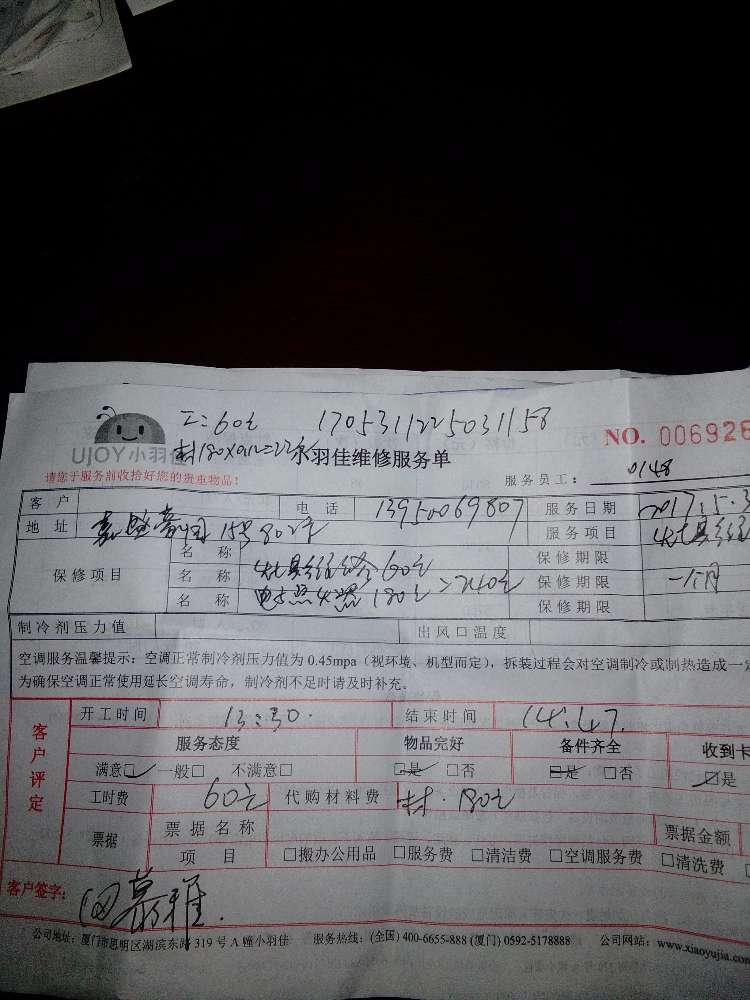 工:60元 1705311225031158
NO. 006926
UJOY小羽佳 材180×0.12=22元
小羽佳维修服务单
请您于服务前收拾好您的贵重物品! 服务员工: 0148
客户 电话 13950069807 服务日期 2017.5.3
地址 15号802 服务项目 灶具维
保修项目 名称 保修期限
名称 灶具维修 60元 保修期限 一个月
名称 点火器 180元 >240元 保修期限
制冷剂压力值 出风口温度
空调服务温馨提示:空调正常制冷剂压力值为 0.45mpa(视环境、机型而定),拆装过程会对空调制冷或制热造成一定
为确保空调正常使用延长空调寿命,制冷剂不足时请及时补充。
客户评定 开工时间 13:30. 结束时间 14:47.
服务态度 物品完好 备件齐全 收到卡
满意□ 一般□ 不满意□ □是 □否 □是 □否 □是
工时费 60元 代购材料费 材.180元
票据 票据名称 票据金额
项目 □搬办公用品 □服务费 □清洁费 □空调服务费 □清洗费
客户签字: 田慕雅.
公司地址:厦门市思明区湖滨东路 319 号 A 幢小羽佳 服务热线:(全国) 400-6655-888 (厦门) 0592-5178888 公司网站:www.xiaoyujia.com